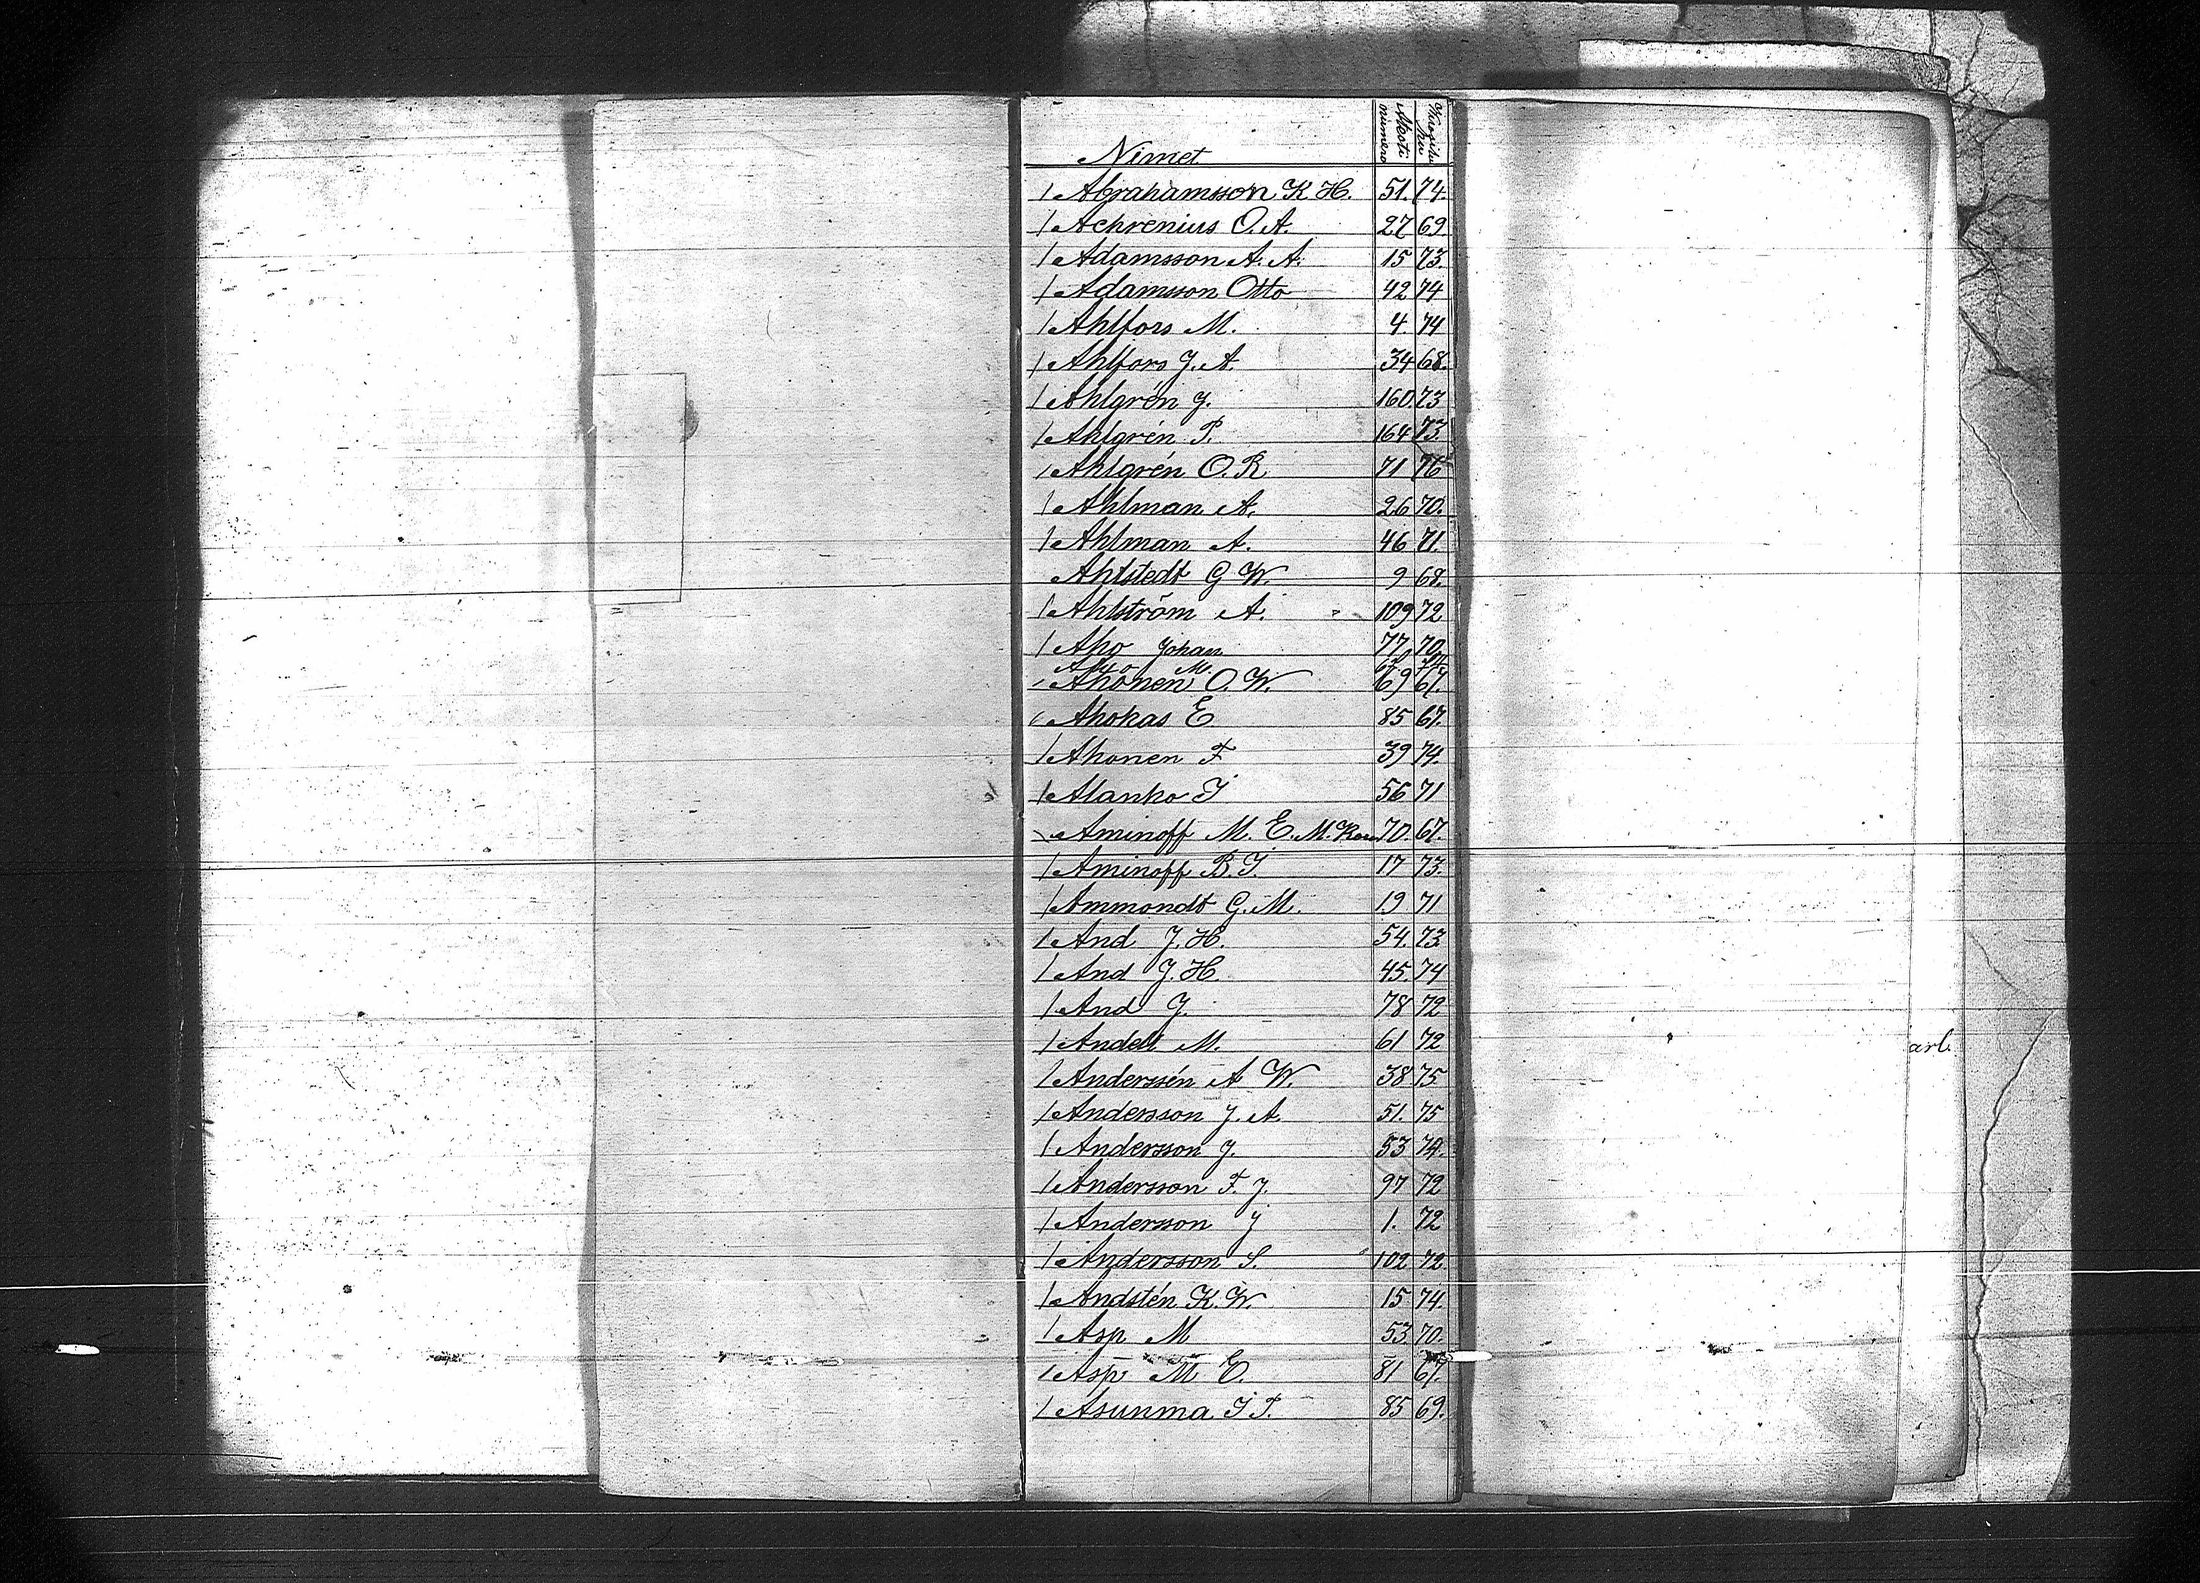 Nimet Akoti numero
/ Abrahamsson K H. 51. 74.
/ Achrenius O. A. 27 69
/ Adamsson A. A. 15 73.
/ Adamsson Otto 42 74
/ Ahlfors M. 4. 74
/ Ahlfors J. A. 34 68.
/ Ahlgrén J. 160. 73
/ Ahlgrén P. 164 73.
/ Ahlgrén O. R 71 76
/ Ahlman A. 26 70.
/ Ahlman A. 46 71.
Ahlstedt G W. 9 68.
/ Ahlström A. 109 72
/ Aho Johan 77 70
Aho M.
/ Ahonen O. W. 69 67.
/ Ahokas E 85 67.
/ Ahonen F 39 74.
/ Alanko I 56 71
\ Aminoff M. E. M. 70. 67.
/ Aminoff B. I. 17 73.
/ Ammondt G. M. 19 71
/ And J. H. 54. 73
/ And J. H. 45. 74
/ And J. 78 72
/ Andell M. 61 72
/ Anderssén A W. 38 75
/ Andersson J. A 51. 75
/ Andersson J. 53 74.
/ Andersson F. J. 97 72
/ Andersson J 1. 72
/ Andersson S. 102 72
/ Andstén K. W. 15 74.
/ Asp M 53 70.
/ Asp M E. 81 67.
/ Asunma I P. 85 69.
arb.